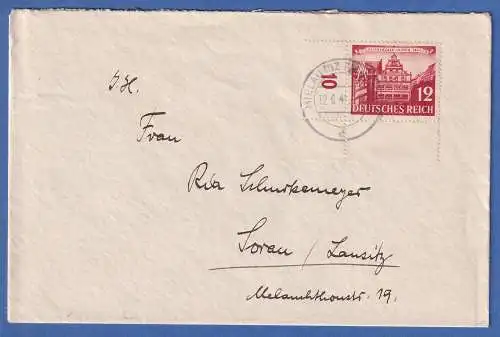 I. H.
Frau
Ria Schurkemeyer
Sorau / Lausitz
Melanchthonstr. 19.
10
12
DEUTSCHES REICH